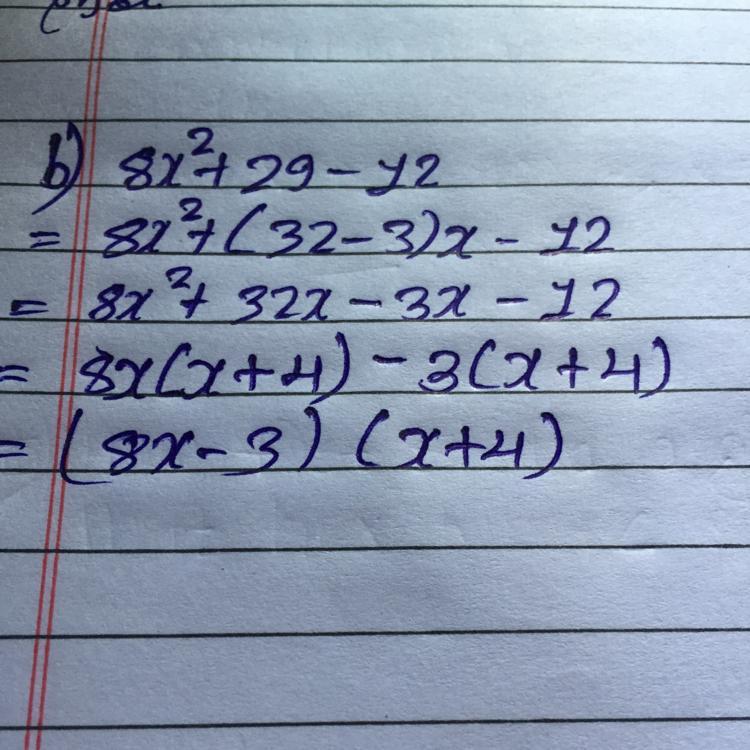 b) 8x²+ 29 - 12
= 8x²+ (32-3)x - 12
= 8x²+ 32x - 3x - 12
= 8x(x+4) - 3(x+4)
= (8x-3) (x+4)